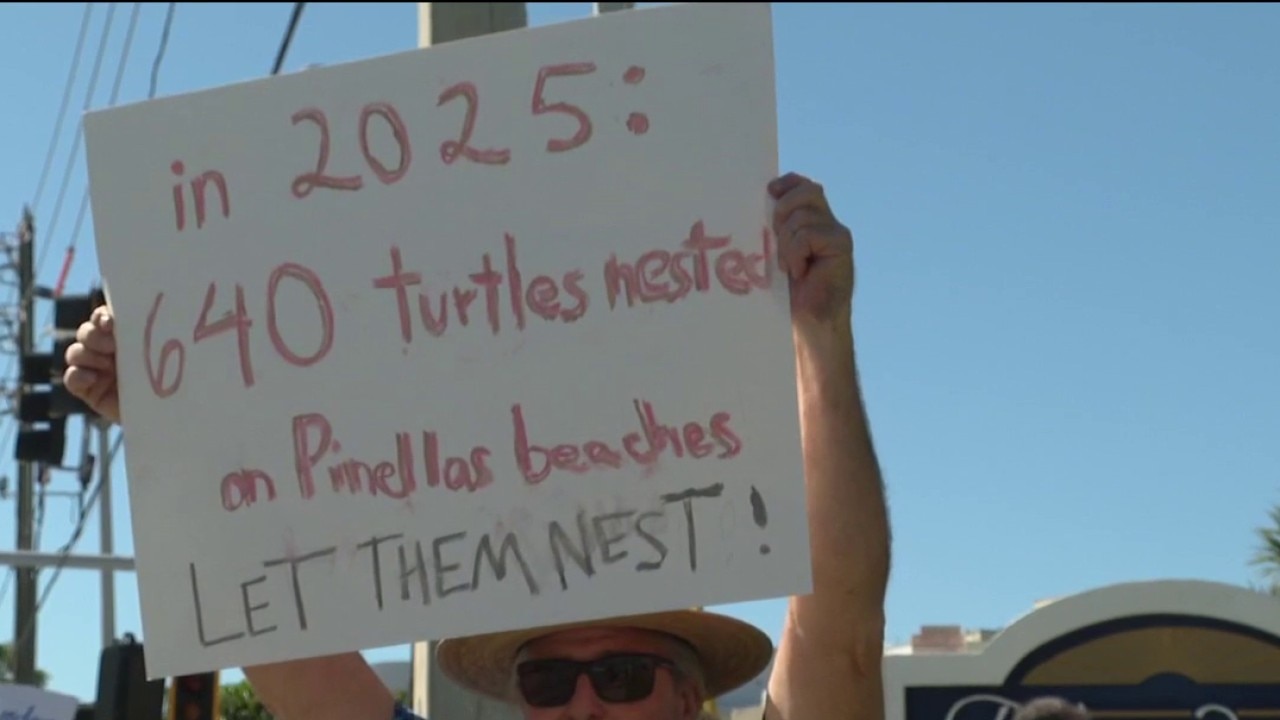 in 2025:
640 turtles nested
on Pinellas beaches
LET THEM NEST!